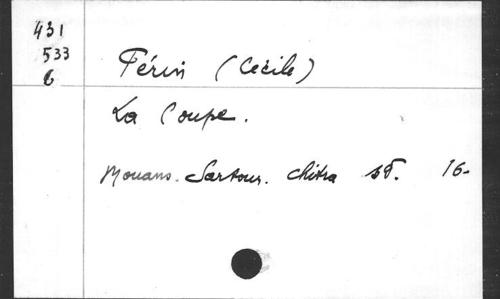 431
533
6
Périn (Cécile)
La Coupe.
Mouans. Sartoux. Chitra sd. 16-